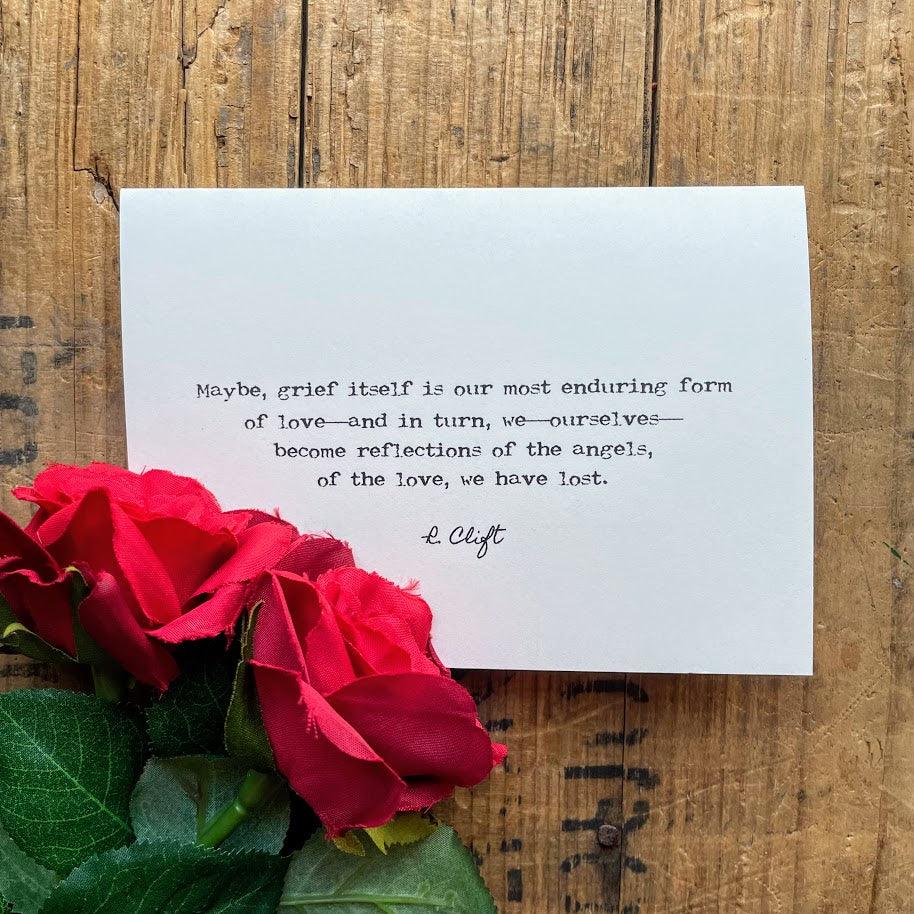 Maybe, grief itself is our most enduring form
of love—and in turn, we—ourselves—
become reflections of the angels,
of the love, we have lost.
R. Clift